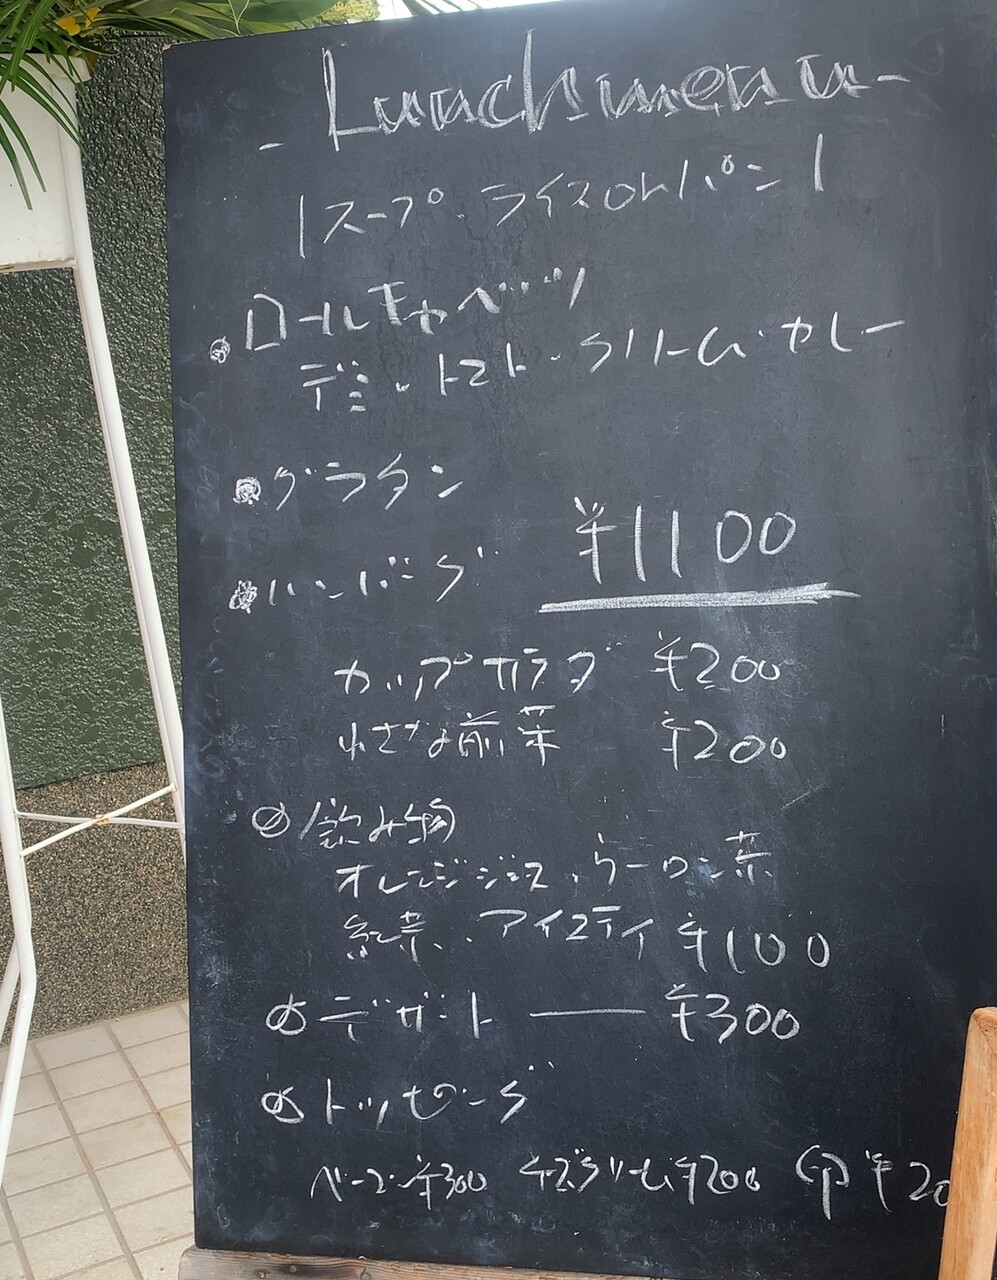 - Lunch menu -
|スープ・ライスorパン|
ロールキャベツ
デミ・トマト・クリーム・カレー
グラタン
ハンバーグ
¥1100
カップサラダ ¥200
小さな前菜 ¥200
飲み物
オレンジジュース、ウーロン茶
紅茶、アイスティ ¥100
デザート — ¥300
トッピング
¥300 ¥200 卵 ¥20